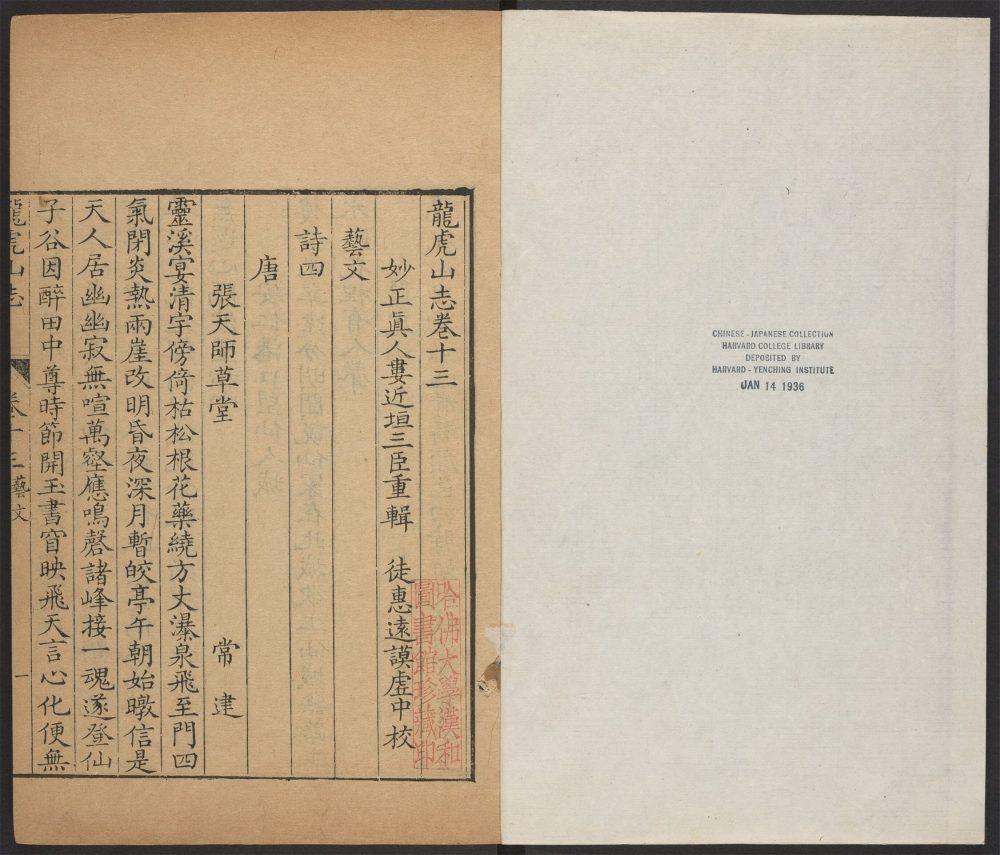 CHINESE - JAPANESE COLLECTION
HARVARD COLLEGE LIBRARY
DEPOSITED BY
HARVARD - YENCHING INSTITUTE
JAN 14 1936
龍虎山志卷十三
妙正眞人婁近垣三臣重輯　徒惠遠謨虛中校
藝文
詩四
唐
張天師草堂　常建
靈溪宴清宇傍倚枯松根花藥繞方丈瀑泉飛至門四
氣閉炎熱兩崖改明昏夜深月暫皎亭午朝始暾信是
天人居幽幽寂無喧萬壑應鳴磬諸峰接一魂遂登仙
子谷因醉田中尊時節開玉書窅映飛天言心化便無
龍虎山志　卷十三藝文　一
哈佛大學漢和
圖書館珍藏印